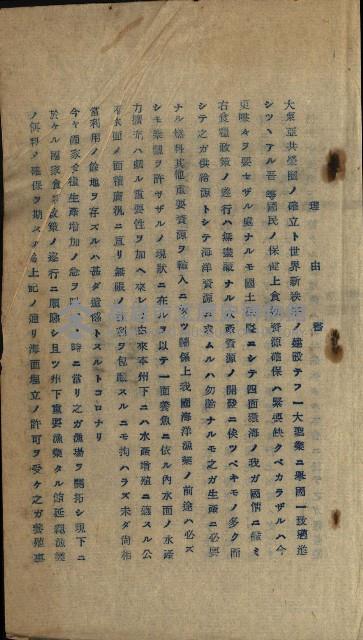 理由書
大東亞共榮圈ノ確立ト世界新秩序ノ建設テフ一大聖業ニ擧國一致邁進
シツヽアル吾等國民ノ保健上食糧資源確保ハ緊要缺クベカラザルハ今
更喋々ヲ要セザル處ナルモ國土狹隘ニシテ四面環海ノ我ガ國情ニ鑑ミ
右食糧政策ノ遂行ハ無盡藏ナル水產資源ノ開發ニ俟ツベキモノ多ク而
シテ之ガ供給源トシテ海洋資源ニ求ムルハ勿論ナルモ之ガ生產ニ必要
ナル燃料其他重要資源ヲ輸入ニ俟ツ關係上我國海洋漁業ノ前途ハ必ズ
シモ樂觀ヲ許サザルノ現狀ニ在ルヲ以テ一面養魚ニ依ル內水面ノ水產
力擴充ハ頗ル重要性ヲ加ヘ來レリ由來本州下ニハ水產增殖ニ適スル公
有水面ノ面積廣汎ニ亘リ無限ノ利ヲ包藏スルニモ拘ハラズ未ダ尚相
當利用ノ餘地ヲ存スルハ甚ダ遺憾トスルトコロナリ
今ヤ國家食糧生產增加ノ急ヲ時ニ當リ之ガ漁場ヲ開拓シ現下ニ
於ケル國家食糧政策ノ遂行ニ順應シ且ツ州下重要漁業タル延繩漁業
ノ餌料ノ確保ヲ期スル爲上記ノ通リ海面埋立ノ許可ヲ受ケ之ガ養殖事